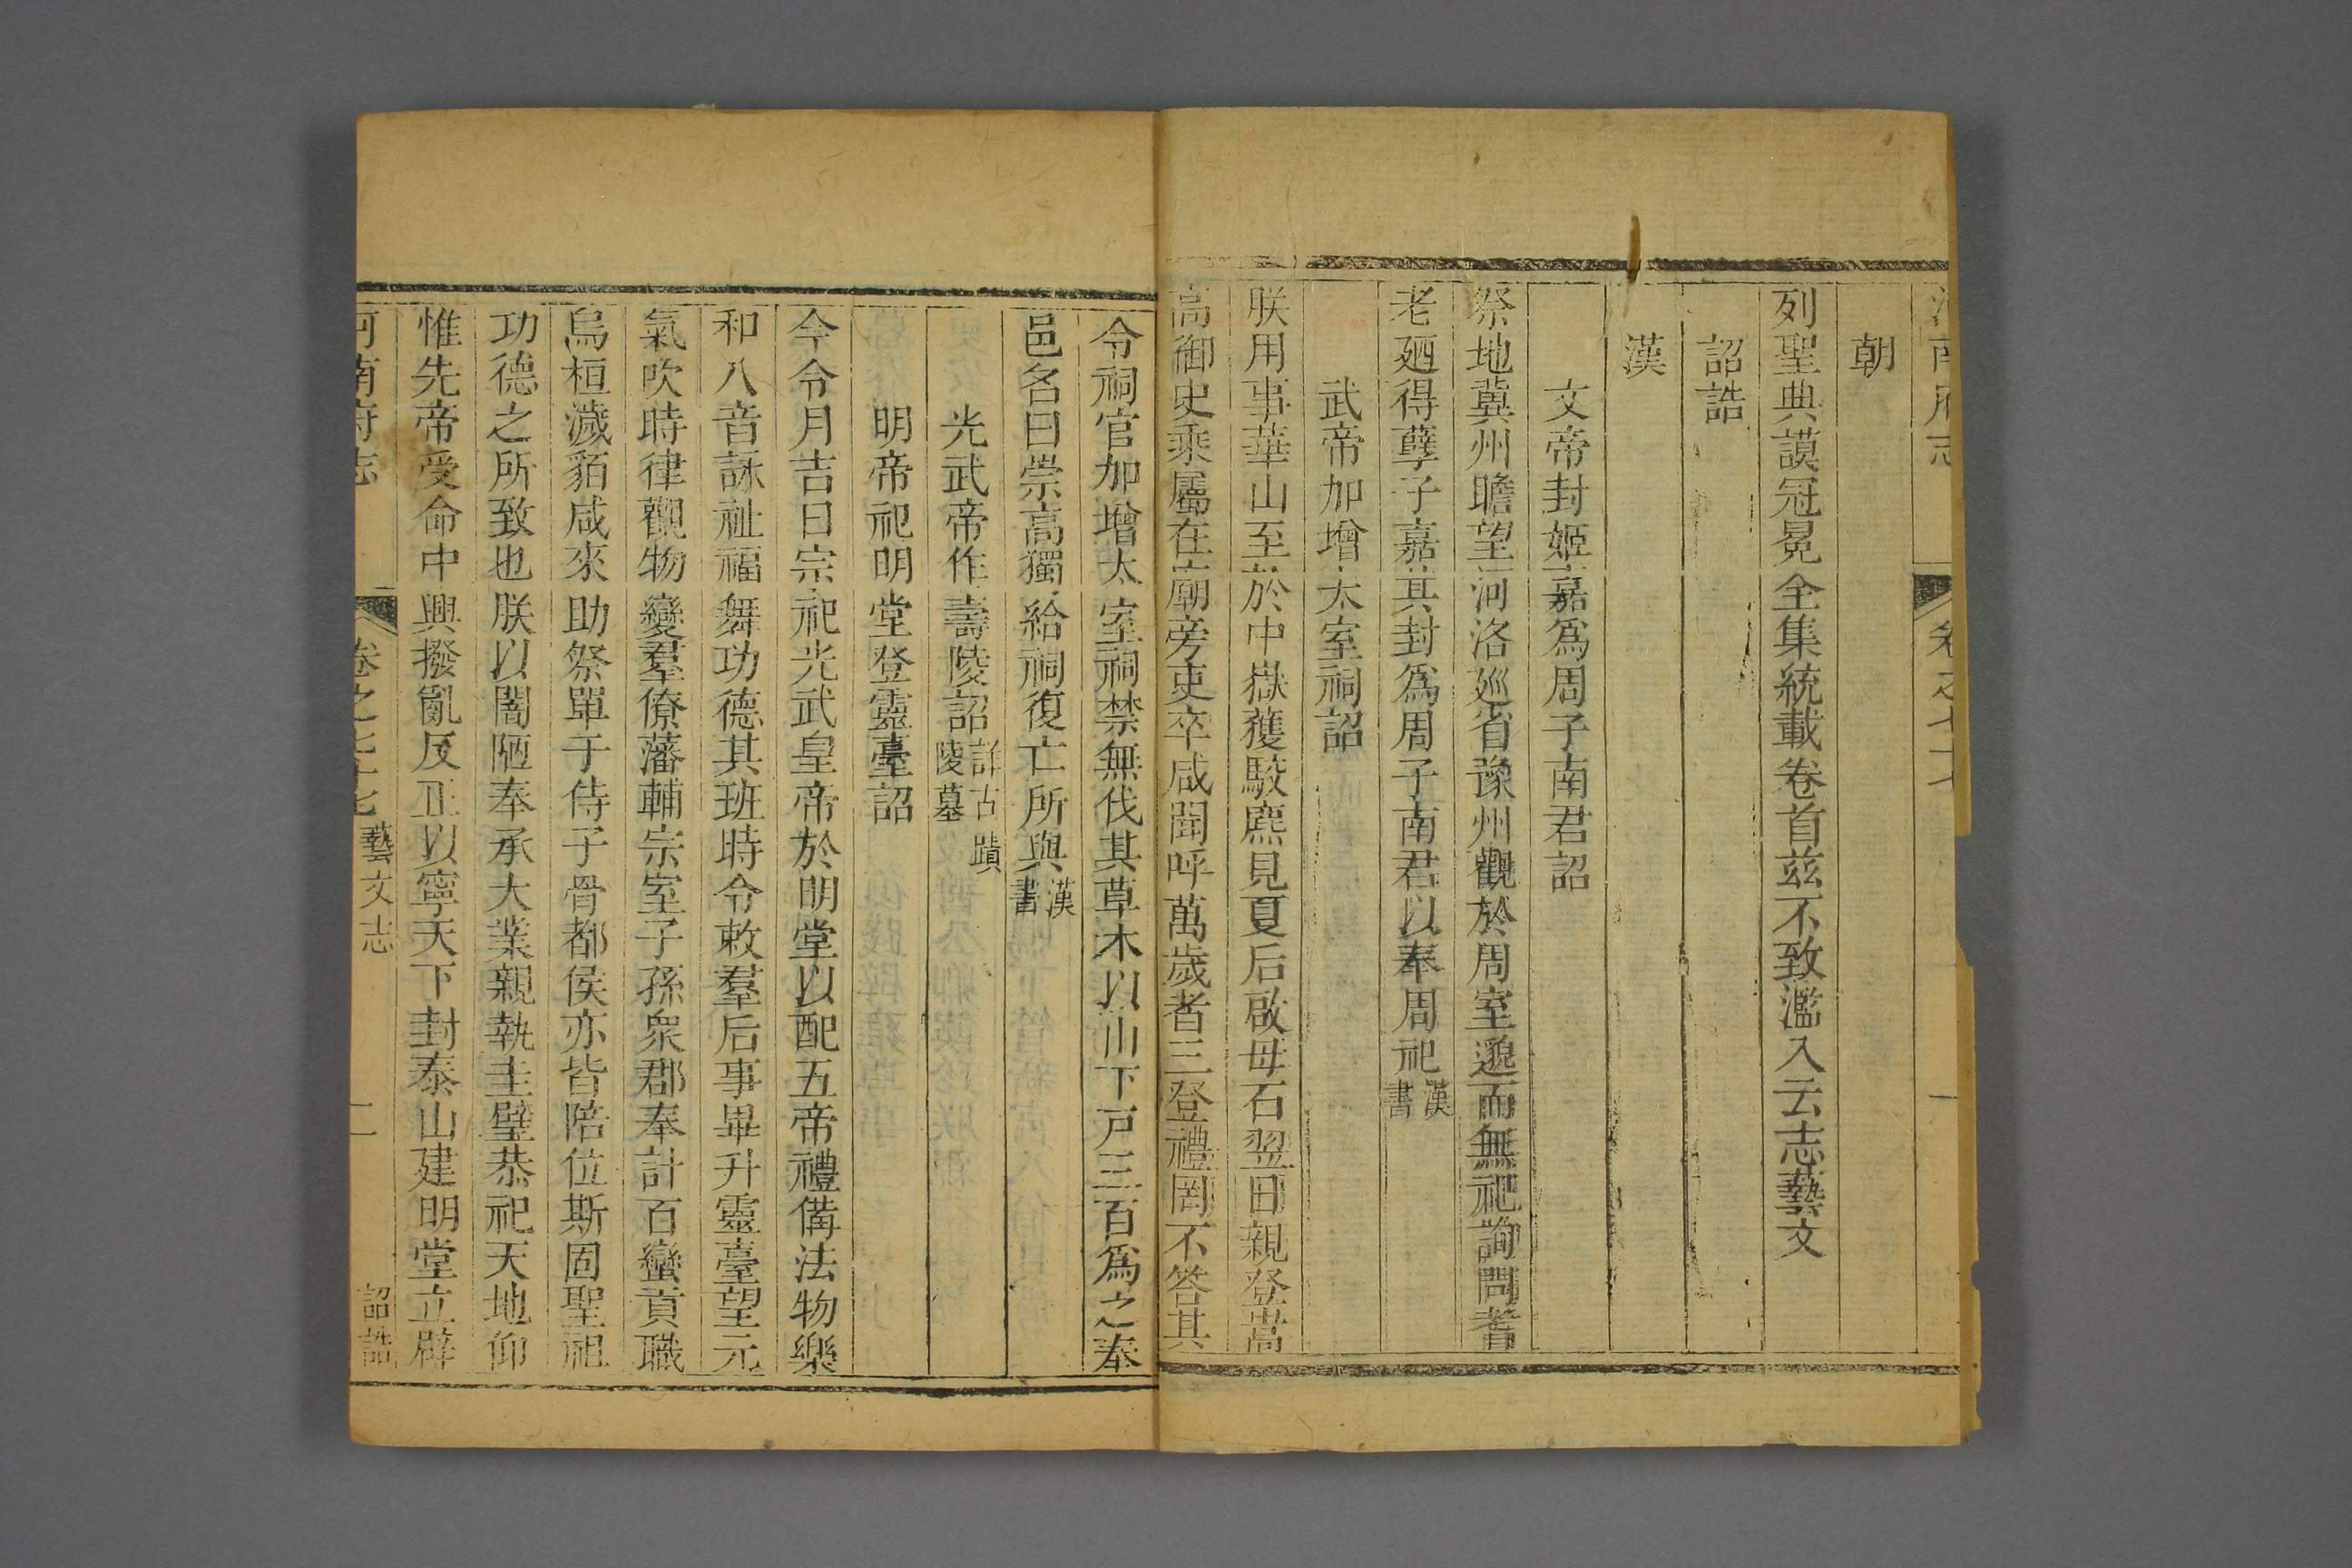 朝
列聖典謨冠冕全集統載卷首茲不致濫入云志藝文
詔誥
漢
文帝封姬嘉為周子南君詔
祭地冀州瞻望河洛廵省豫州觀於周室邈而無祀詢問耆
老廼得孽子嘉其封為周子南君以奉周祀漢書
武帝加增太室祠詔
朕用事華山至於中嶽獲駮麃見夏后啟母石翌日親登嵩
高御史乘屬在廟旁吏卒咸聞呼萬歲者三登禮罔不答其
令祠官加增太室祠禁無伐其草木以山下戸三百為之奉
邑名曰崇高獨給祠復亡所與漢書
光武帝作壽陵詔詳古蹟陵墓
明帝祀明堂登靈臺詔
今令月吉日宗祀光武皇帝於明堂以配五帝禮備法物樂
和八音詠祉福舞功德其班時令敕羣后事畢升靈臺望元
氣吹時律觀物變羣僚藩輔宗室子孫衆郡奉計百蠻貢職
烏桓濊貊咸來助祭單于侍子骨都侯亦皆陪位斯固聖祖
功德之所致也朕以闇陋奉承大業親執圭璧恭祀天地仰
惟先帝受命中興撥亂反正以寧天下封泰山建明堂立辟
河南府志 卷之七十七 藝文志 二 詔誥